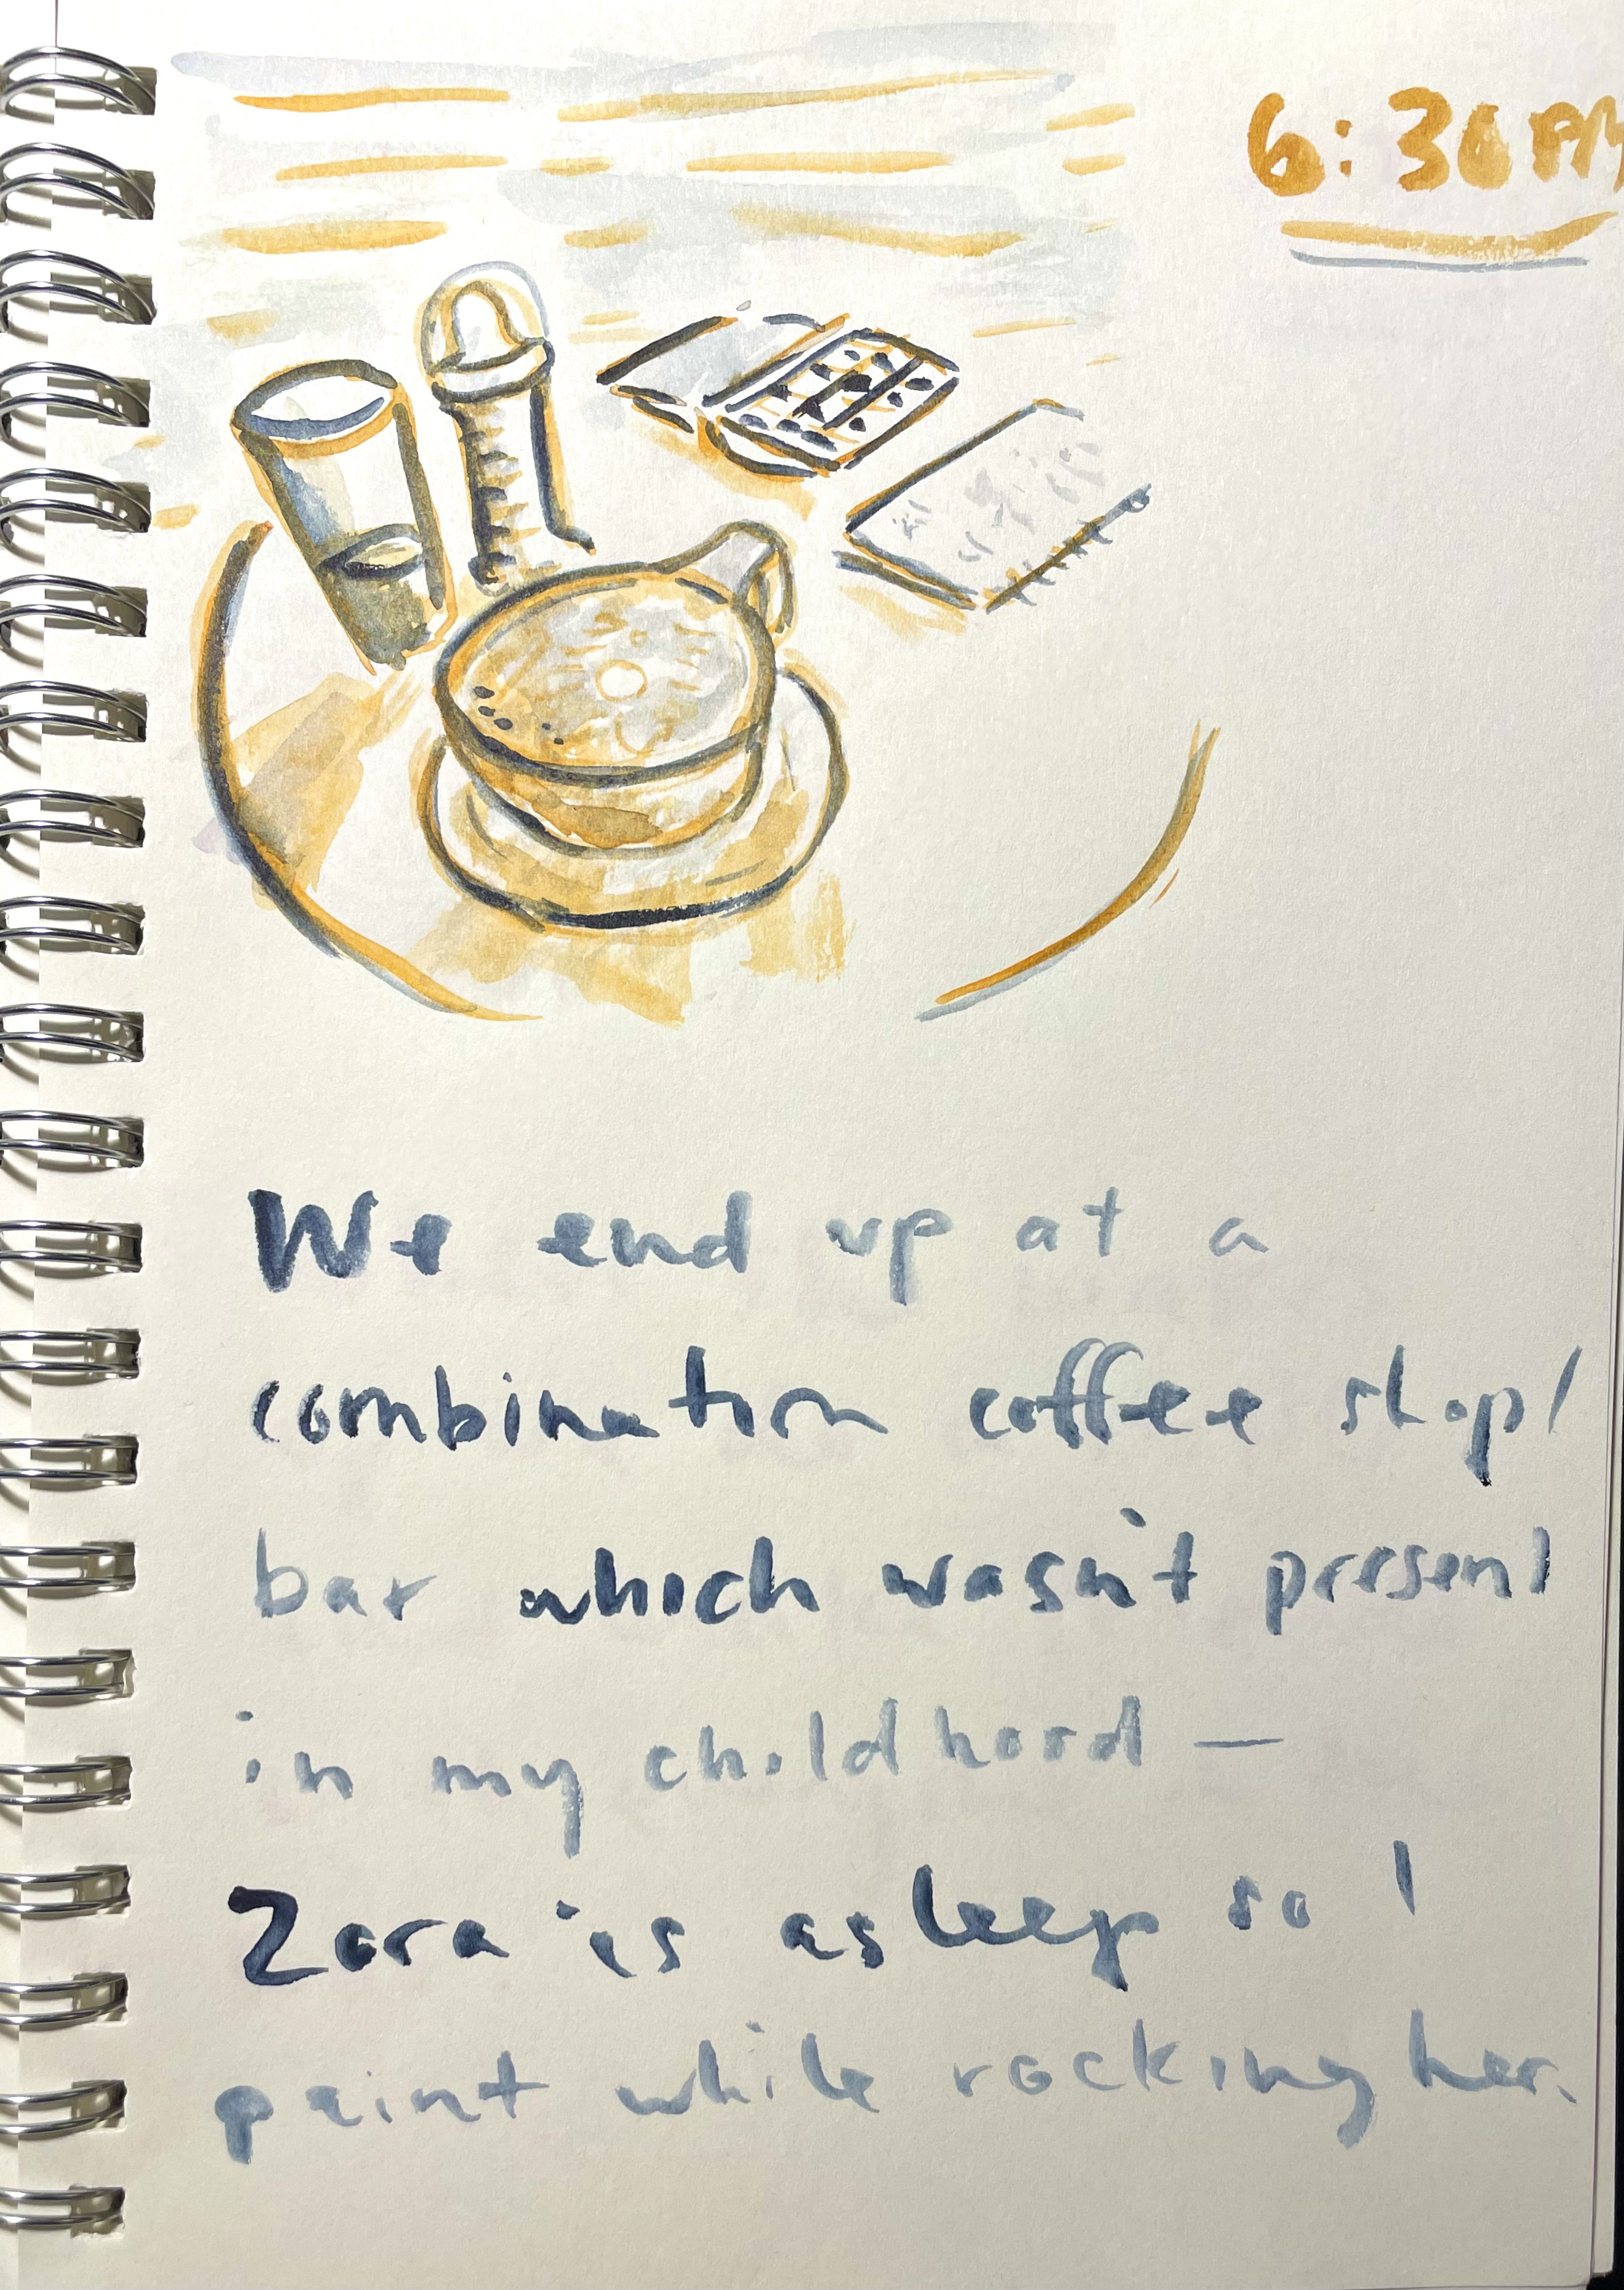 6:30 PM
We end up at a
combination coffee shop/
bar which wasn't present
in my childhood —
Zora is asleep so I
paint while rocking her.